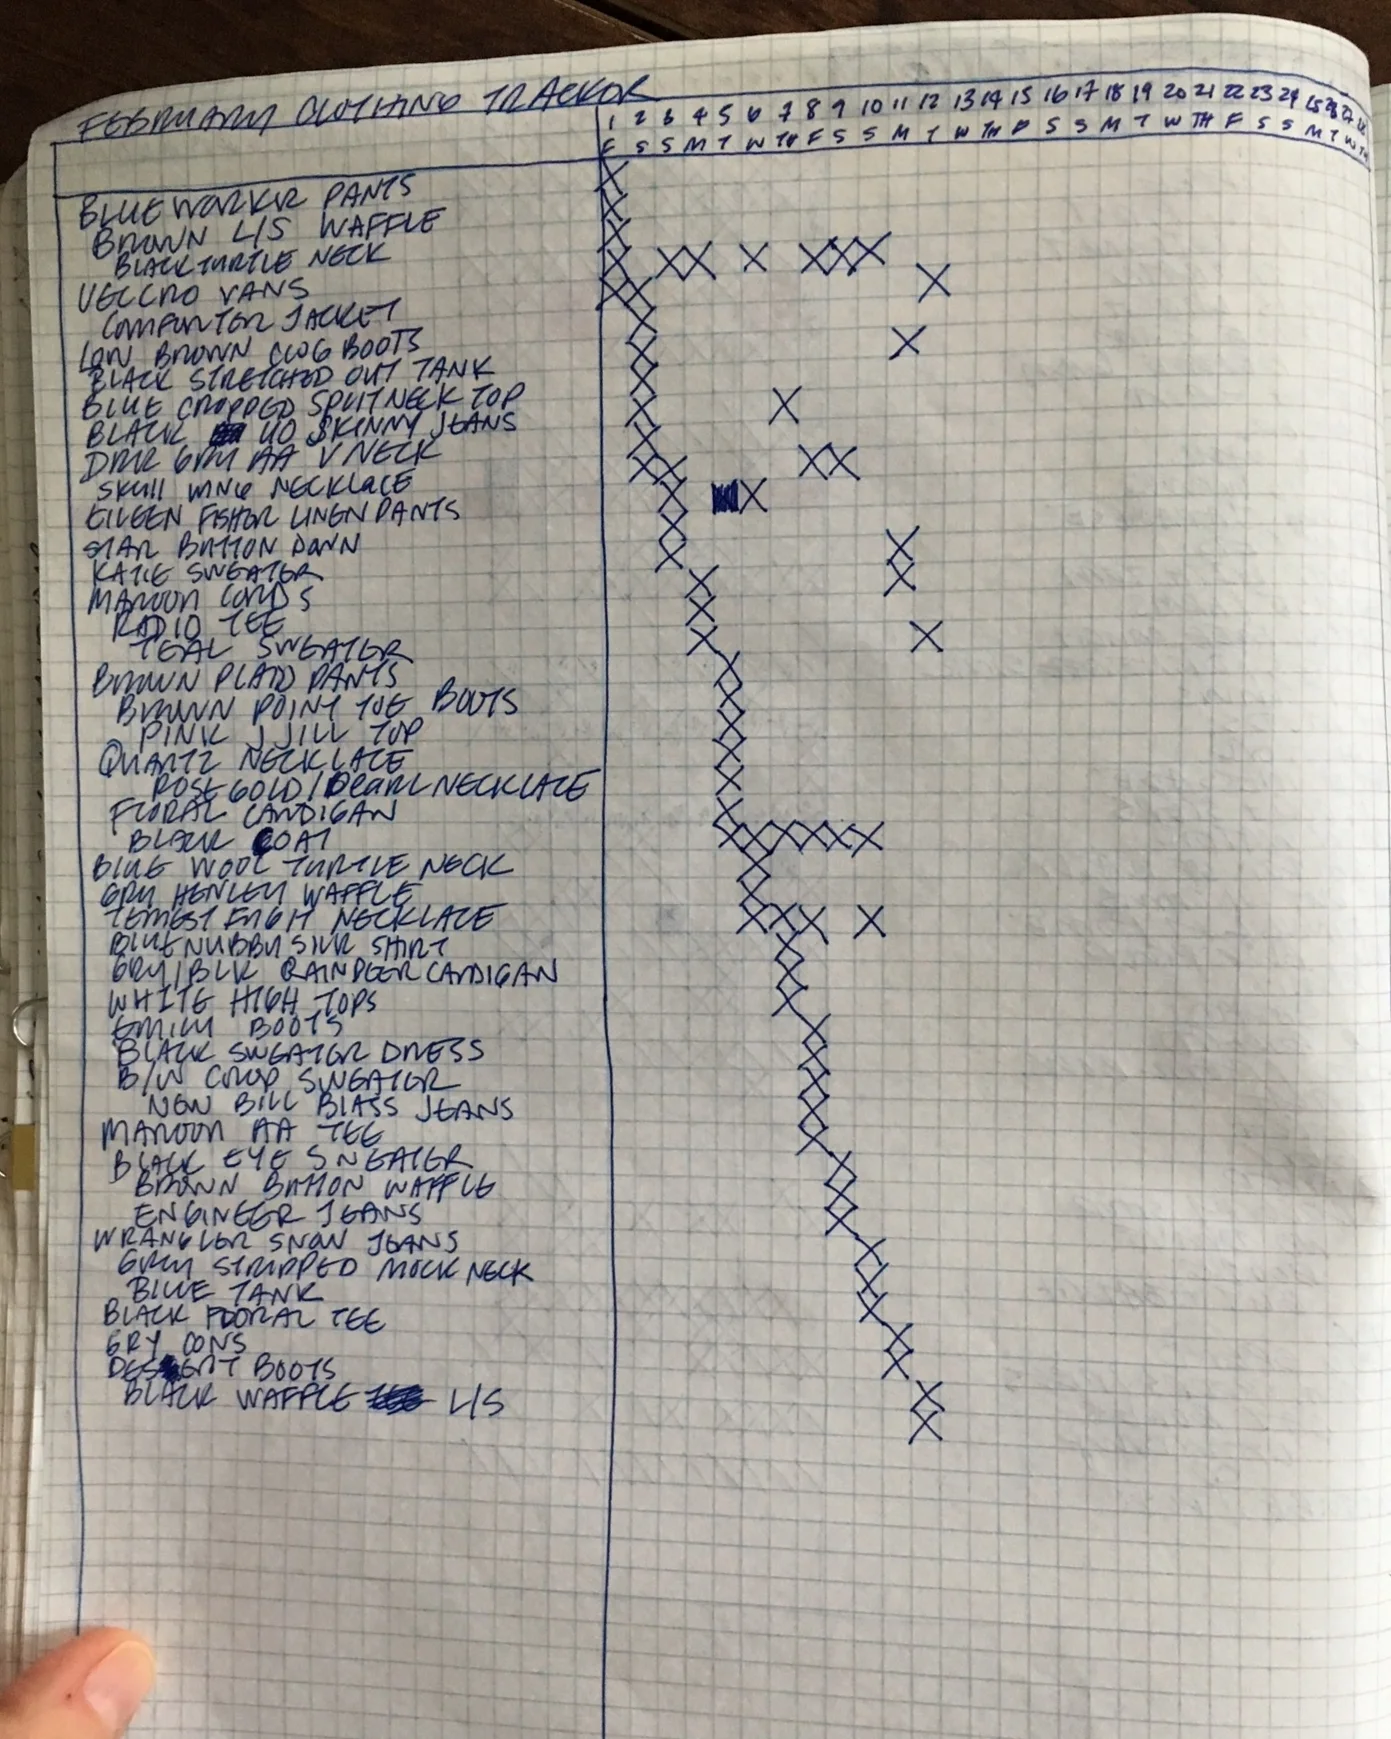 FEBRUARY CLOTHING TRACKOR
1 2 3 4 5 6 7 8 9 10 11 12 13 14 15 16 17 18 19 20 21 22 23 24 25 26 27 28
F S S M T W TH F S S M T W TH F S S M T W TH F S S M T W TH
BLUE WORKER PANTS
BROWN L/S WAFFLE
BLACK TURTLE NECK
VELCRO VANS
COMFORTER JACKET
LOW BROWN CLOG BOOTS
BLACK STRETCHED OUT TANK
BLUE CROPPED SPLIT NECK TOP
BLACK UO SKINNY JEANS
DRK GRY AA V NECK
SKULL WING NECKLACE
EILEEN FISHER LINEN PANTS
STAR BUTTON DOWN
KATIE SWEATER
MAROON CORDS
RADIO TEE
TEAL SWEATER
BROWN PLAID PANTS
BROWN POINY TOE BOOTS
PINK J JILL TOP
QUARTZ NECKLACE
ROSE GOLD/PEARL NECKLACE
FLORAL CARDIGAN
BLACK COAT
BLUE WOOL TURTLE NECK
GRY HENLEY WAFFLE
NECKLACE
BLUE NUBBY SILK SHIRT
GRY/BLK RAINDEER CARDIGAN
WHITE HIGH TOPS
EMILY BOOTS
BLACK SWEATER DRESS
B/W CROP SWEATER
NEW BILL BLASS JEANS
MAROON AA TEE
BLACK EYE SWEATER
BROWN BUTTON WAFFLE
ENGINEER JEANS
WRANGLER SNOW JEANS
GREY STRIPPED MOCK NECK
BLUE TANK
BLACK FLORAL TEE
GRY CONS
DESERT BOOTS
BLACK WAFFLE L/S